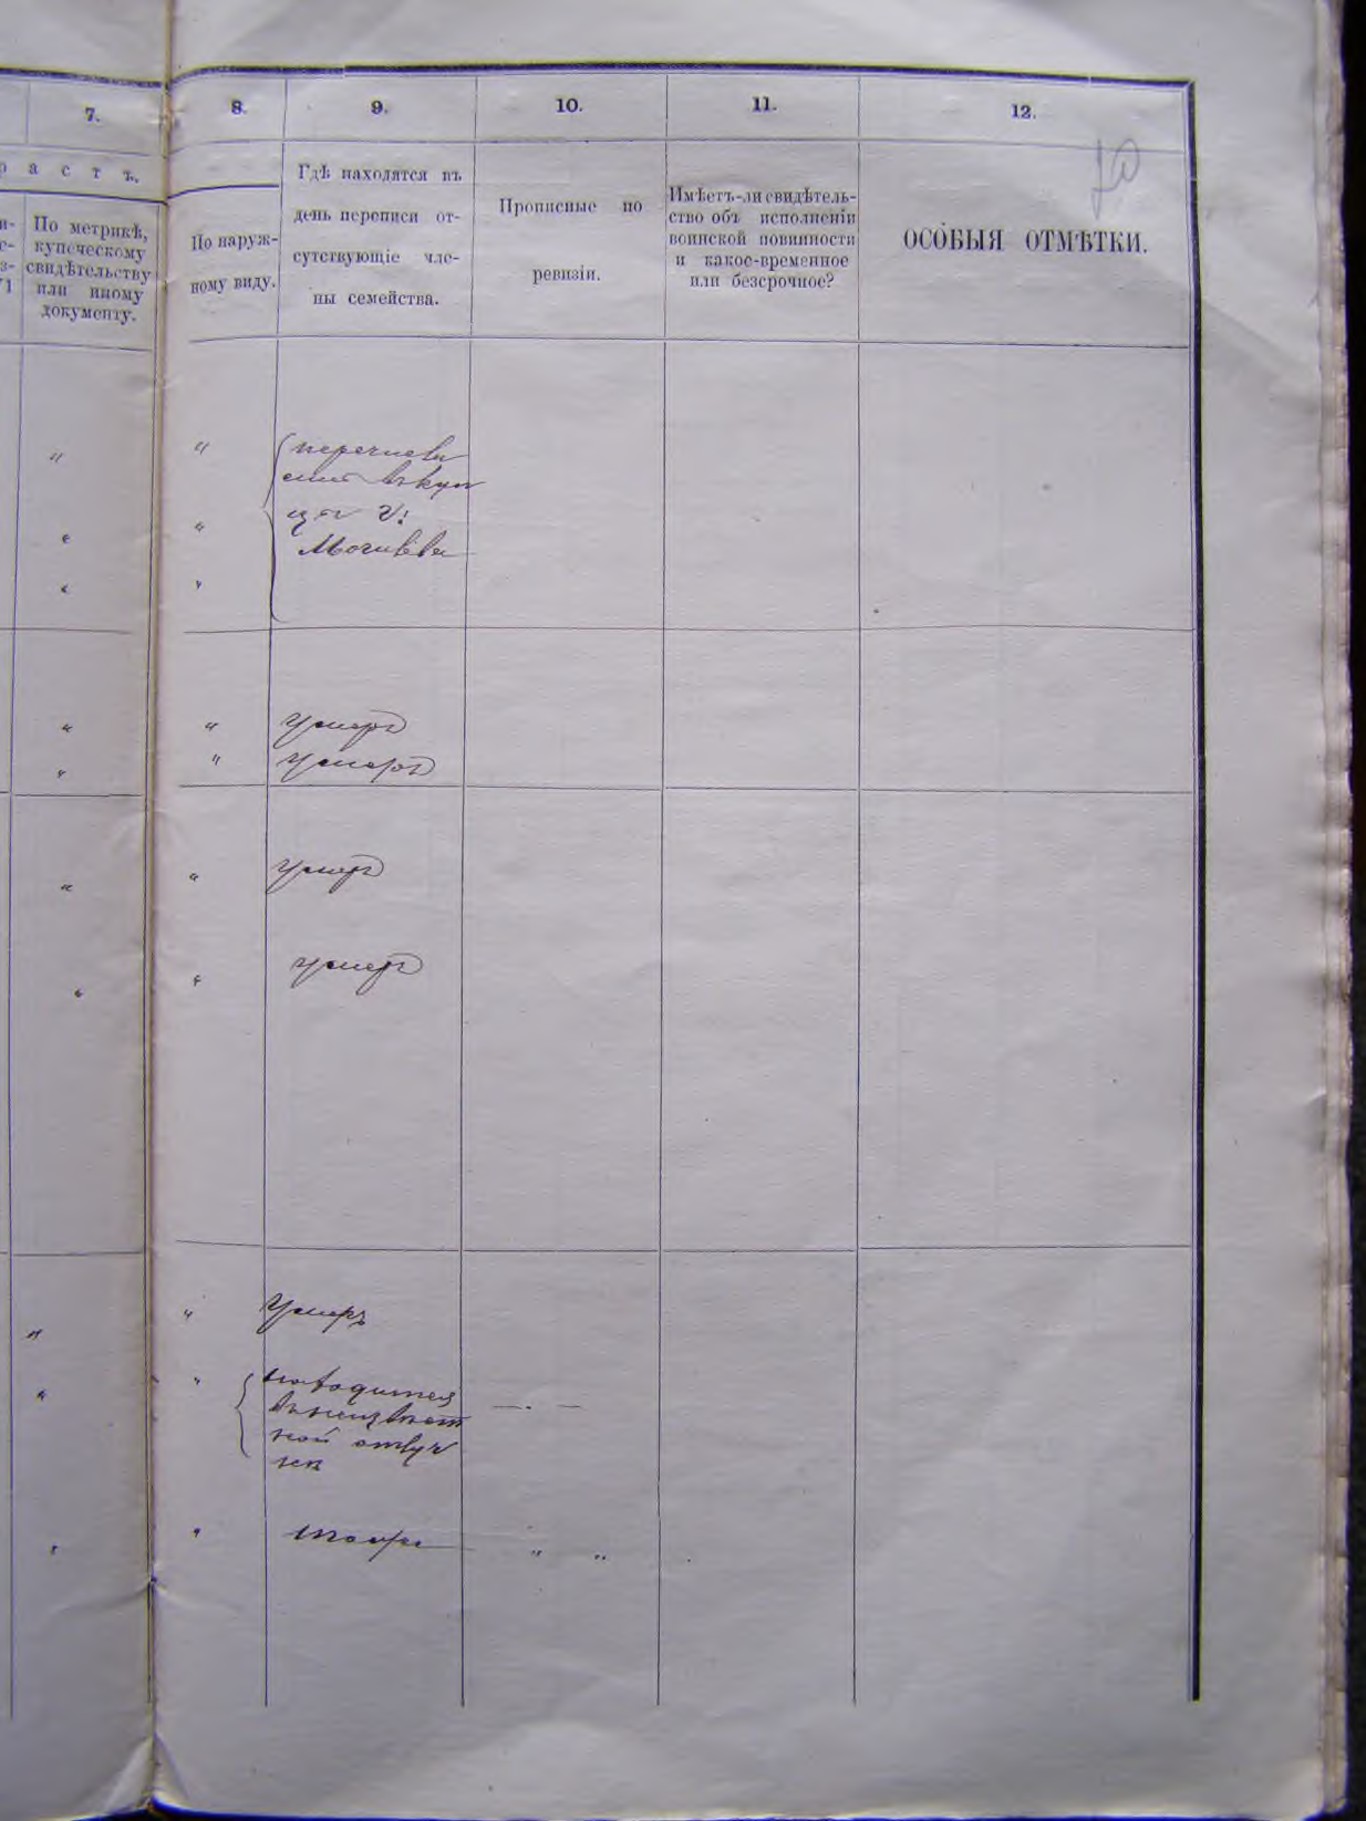 7.
8.
9.
10.
11.
12.
р а с т ъ.
По метрикѣ,
купеческому
свидѣтельству
или иному
документу.
По наруж-
ному виду.
Гдѣ находятся въ
день переписи от-
сутствующіе чле-
ны семейства.
Прописные по
ревизіи.
Имѣетъ-ли свидѣтель-
ство объ исполненіи
воинской повинности
и какое-временное
или безсрочное?
ОСОБЫЯ ОТМѢТКИ.
70
" " перечисле
" г.
Могилева
" "
" " умеръ
" " умеръ
" " умеръ
" " умеръ
" " Умеръ
" " находится
въ неизвѣст
ной отлуч
кѣ
" " " "